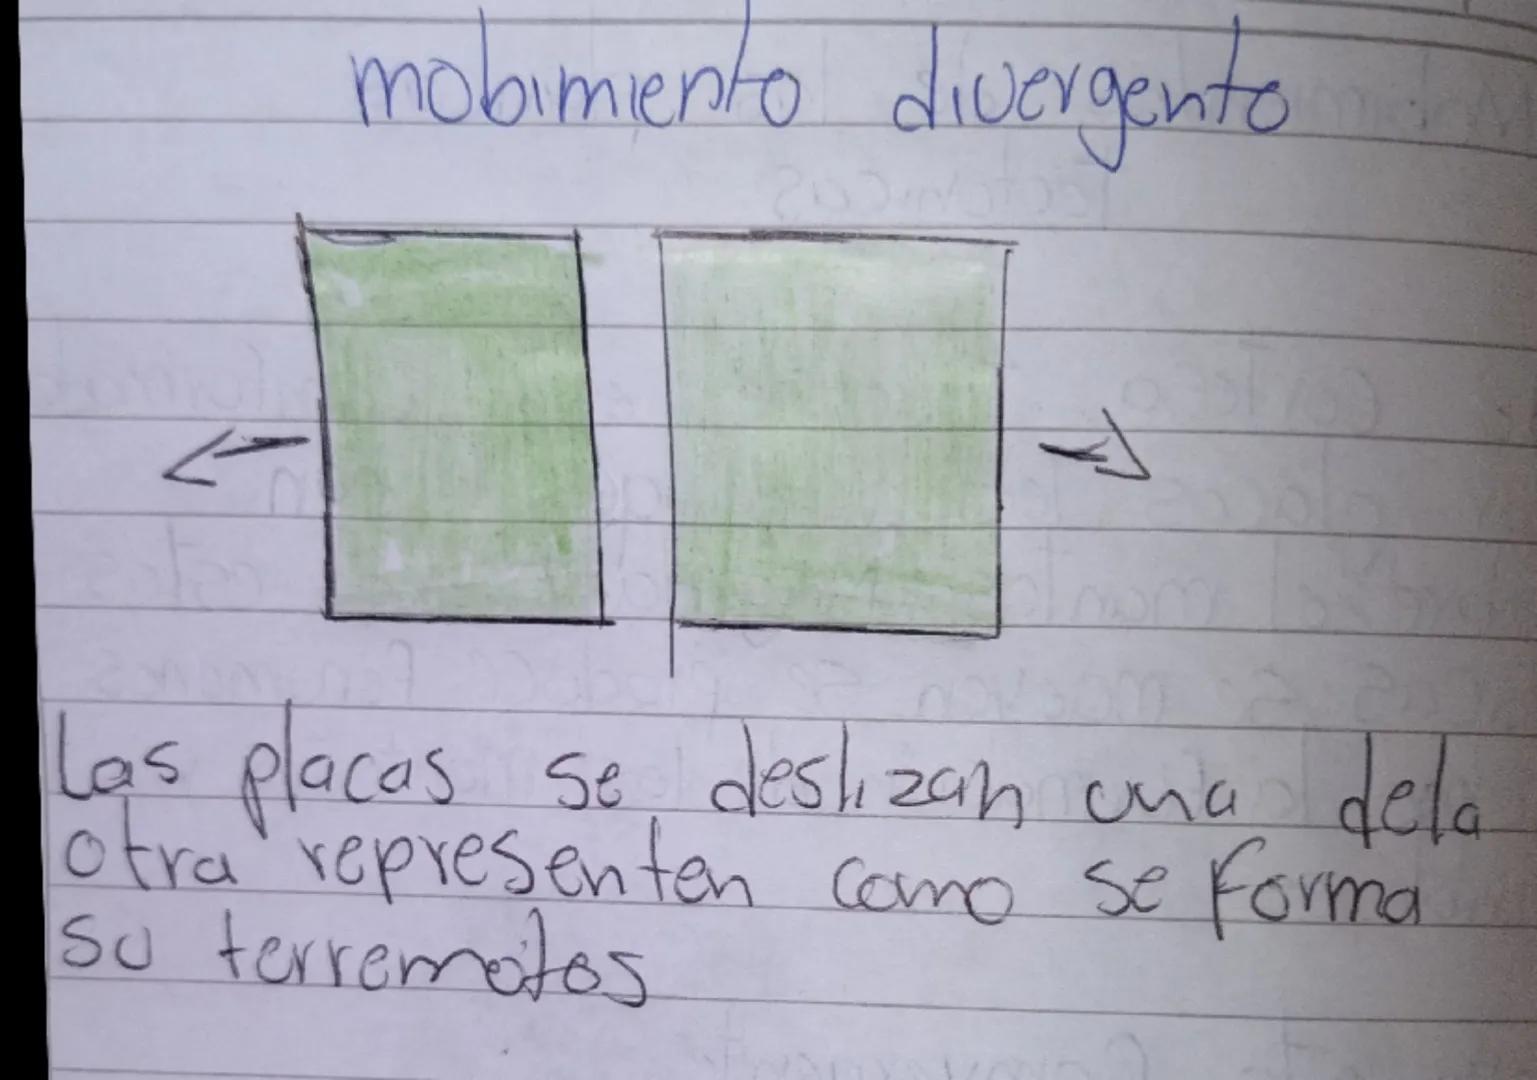 mobimiento divergento
Las placas se deslizan una dela
otra representen como se forma
su terremotos